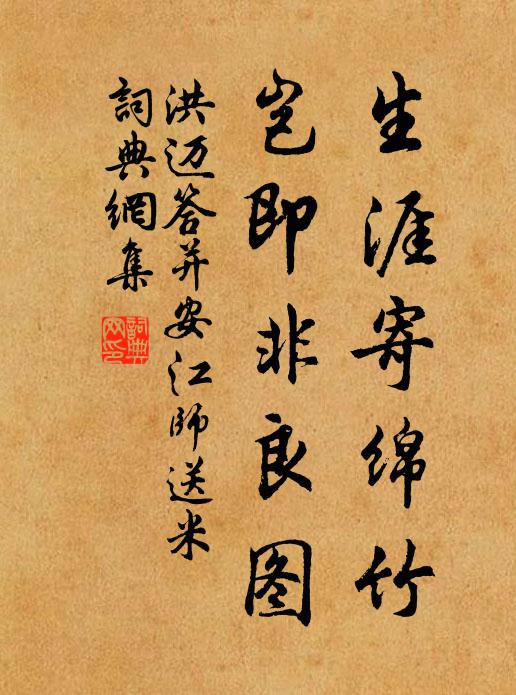 生涯寄绵竹
岂即非良图
洪迈答并安江师送米
詞典網集
詞典
网印